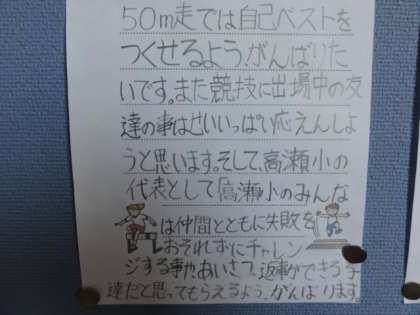 50m走では自己ベストを
つくせるよう、がんばりた
いです。また競技に出場中の友
達の事はせいいっぱい応えんしよ
うと思います。そして、高瀬小の
代表として「高瀬小のみんな
は仲間とともに失敗を
おそれずにチャレン
ジする事や、あいさつ、返事ができる子
達だと思ってもらえるよう、がんばります。